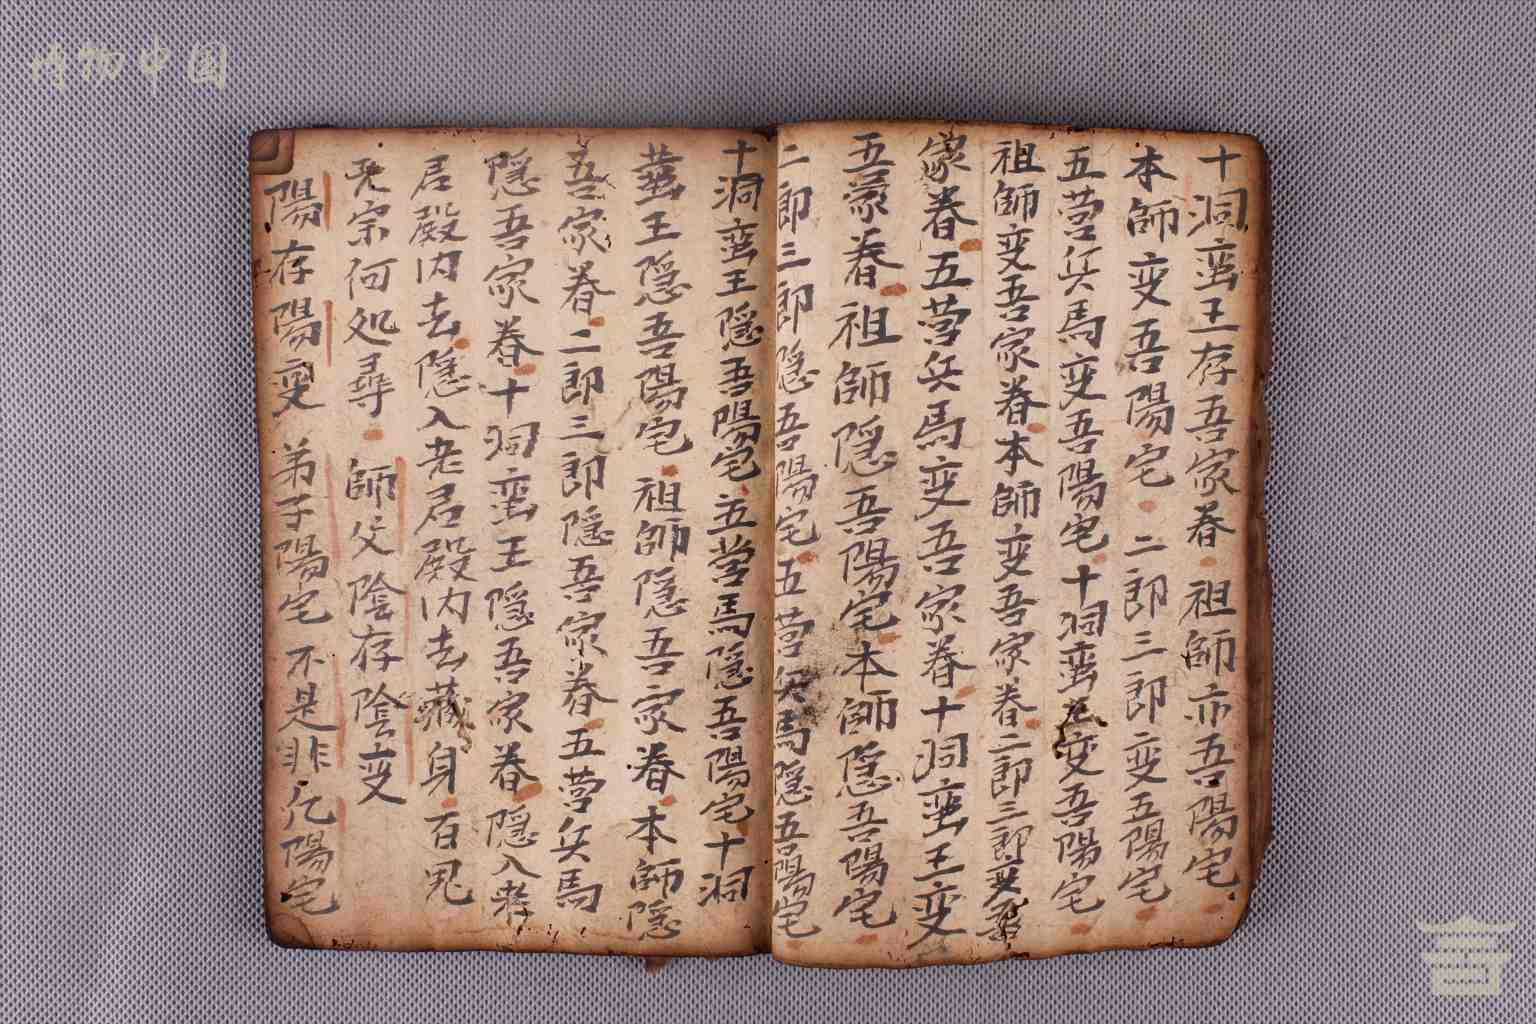 十洞蛮王存吾家眷祖師亦吾陽宅
本師变吾陽宅二郎三郎变五陽宅
五营兵馬变吾陽宅十洞蛮王变吾陽宅
祖師变吾家眷本師变吾家眷二郎三郎变吾
家眷五营兵馬变吾家眷十洞蛮王变
五家眷祖師隱吾陽宅本師隱吾陽宅
二郎三郎隱吾陽宅五营兵馬隱吾陽宅
十洞蛮王隱吾陽宅五营馬隱吾陽宅十洞
蛮王隱吾陽宅祖師隱吾家眷本師隱
吾家眷二郎三郎隱吾家眷五营兵馬
隱吾家眷十洞蛮王隱吾家眷隱入老
君殿内去隱入老君殿内去藏身百鬼
先宗何処尋師父陰存陰变
陽存陽变弟子陽宅不是非凡陽宅
博物中国